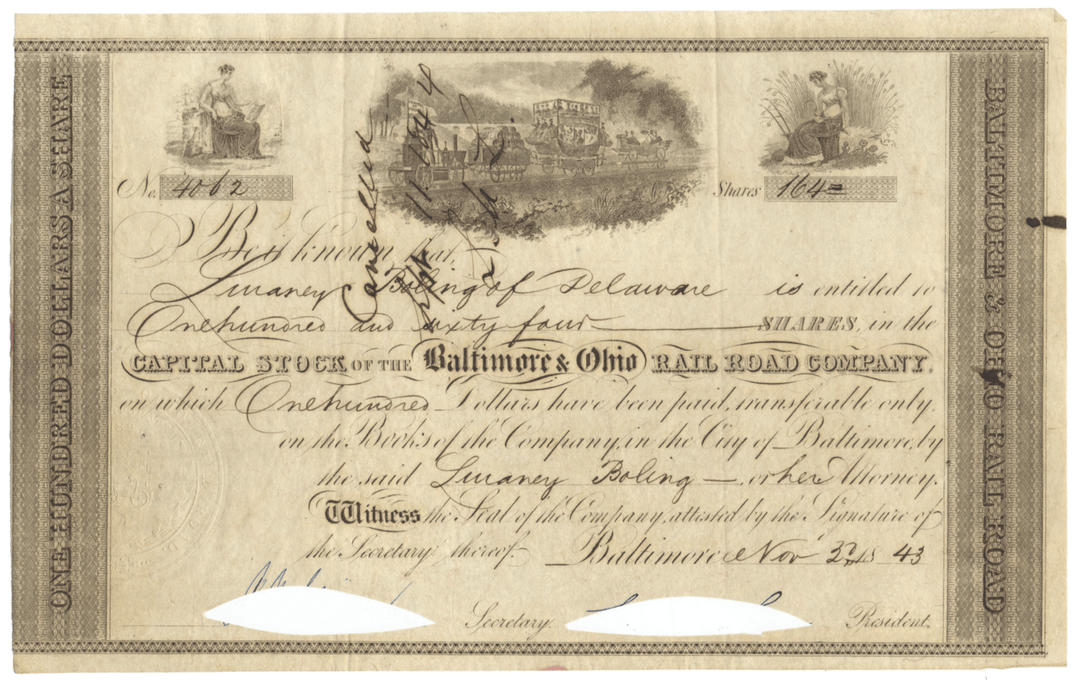 ONE HUNDRED DOLLARS A SHARE
BALTIMORE & OHIO RAIL ROAD
No. 4062
Shares 164
Cancelled
Be it known, that,
Boling of Delaware is entitled to
One hundred and sixty four SHARES, in the
CAPITAL STOCK OF THE Baltimore & Ohio RAIL ROAD COMPANY.
on which One hundred Dollars have been paid, transferable only,
on the Books of the Company, in the City of Baltimore, by
the said Boling — or her Attorney.
Witness the Seal of the Company, attested by the Signature of
the Secretary thereof Baltimore Nov 18 43
Secretary. President.